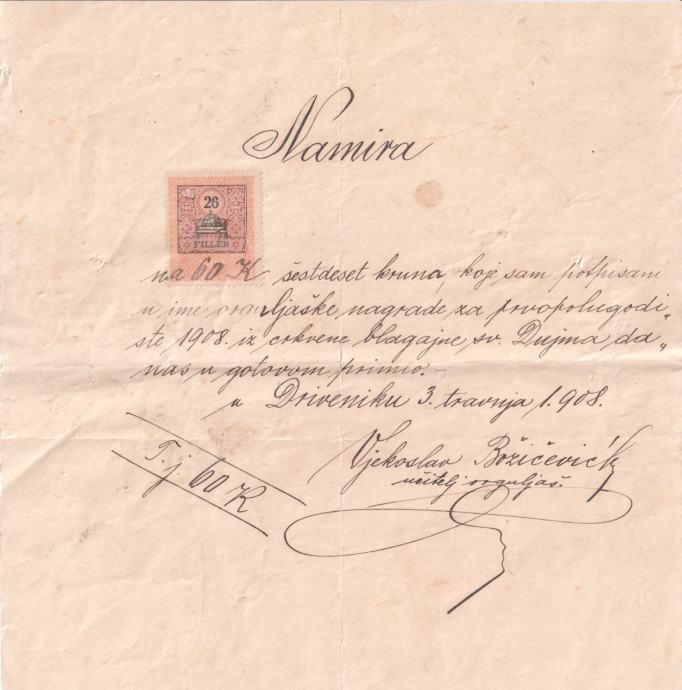 Namira
26
FILLÉR
na 60 K šestdeset kruna, koje sam potpisani
u ime orguljaške nagrade za prvopolugodi„
šte 1908. iz crkvene blagajne sv. Dujma da„
nas u gotovom primio.–
u Driveniku 3. travnja 1.908.
Vjekoslav Božičević
učitelj orguljaš.
T. j. 60 K